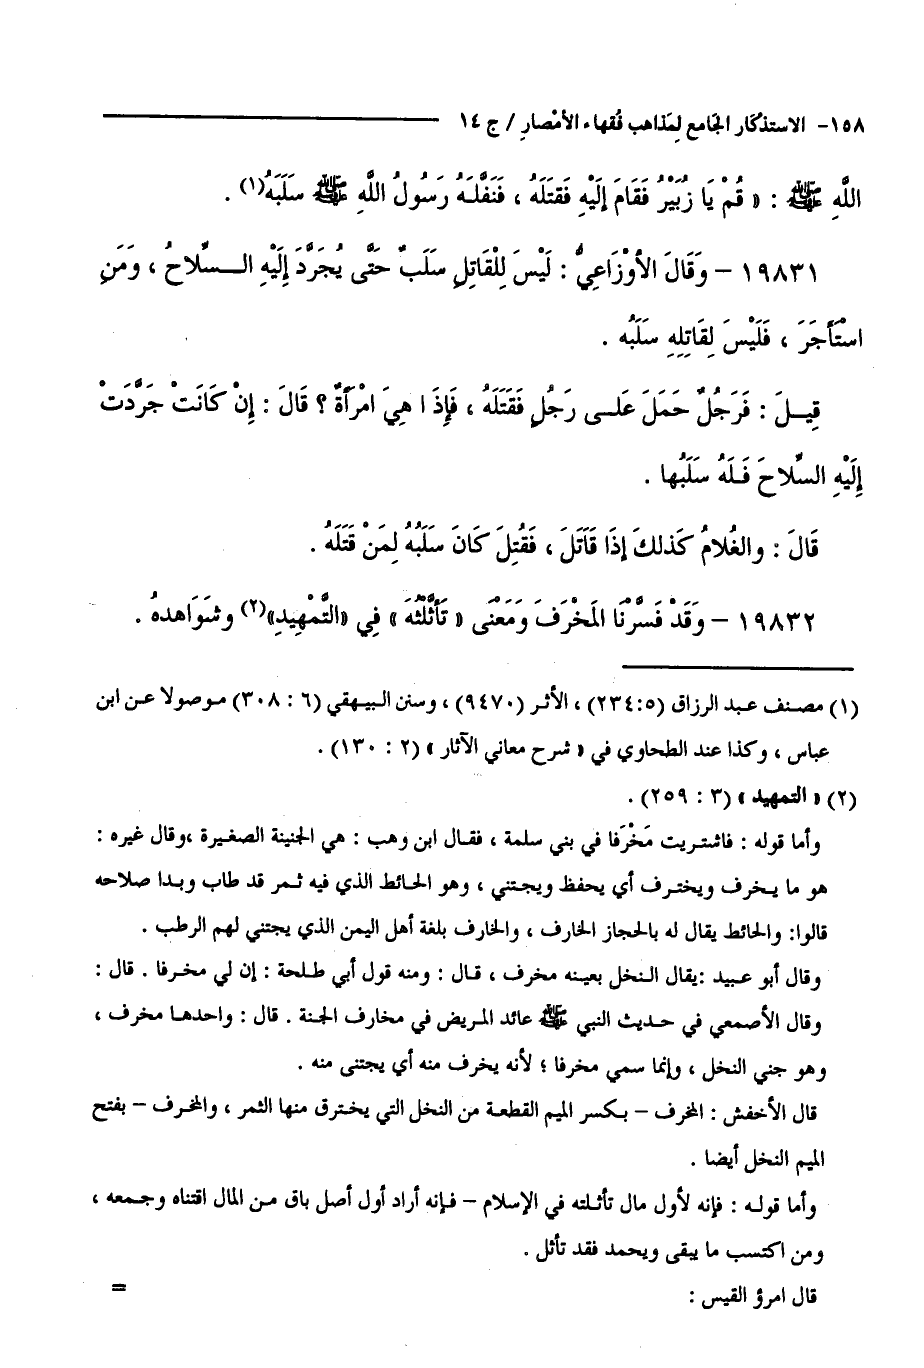 ١٥٨- الاستذكار الجامع لِمَذاهب فُقهاء الأمْصارِ / ج ١٤
اللَّهِ ﷺ : « قُمْ يَا زُبَيْرُ فَقَامَ إِلَيْهِ فَقتَلَهُ ، فَنَفَّلَهُ رَسُولُ اللَّهِ ﷺ سَلَبَهُ(١) .
١٩٨٣١ – وَقَالَ الأوْزَاعِيُّ : لَيْسَ لِلْقَاتِلِ سَلَبٌ حَتَّى يُجَرَّدَ إِلَيْهِ السِّلاحُ ، وَمَنِ
اسْتَأْجَرَ ، فَلَيْسَ لِقَاتِلِهِ سَلَبُه .
قِيلَ : فَرَجُلٌ حَمَلَ عَلى رَجُلٍ فَقَتَلَهُ ، فَإِذَا هِيَ امْرَأَةٌ ؟ قَالَ : إِنْ كَانَتْ جَرَّدَتْ
إِلَيْهِ السِّلاحَ فَلَهُ سَلَبُها .
قَالَ : والغُلامُ كَذلكَ إِذَا قَاتَلَ ، فَقُتِلَ كَانَ سَلَبُهُ لِمَنْ قَتَلَهُ .
١٩٨٣٢ – وَقَدْ فَسَّرْنَا المَخْرَفَ وَمَعْنَى « تَأَثَّلْتُهُ » فِي «التَّمْهِيدِ»(٢) وشَوَاهدهُ .
(١) مصنف عبد الرزاق (٢٣٤:٥) ، الأثر (٩٤٧٠) ، وسنن البيهقي (٦ : ٣٠٨) موصولا عن ابن
عباس ، وكذا عند الطحاوي في « شرح معاني الآثار » (٢ : ١٣٠) .
(٢) « التمهيد » (٣ : ٢٥٩) .
وأما قوله : فاشتريت مَخْرَفا في بني سلمة ، فقال ابن وهب : هي الجنينة الصغيرة ،وقال غيره :
هو ما يخرف ويخترف أي يحفظ ويجتني ، وهو الحائط الذي فيه ثمر قد طاب وبدا صلاحه
قالوا: والحائط يقال له بالحجاز الخارف ، والخارف بلغة أهل اليمن الذي يجتني لهم الرطب .
وقال أبو عبيد :يقال النخل بعينه مخرف ، قال : ومنه قول أبي طلحة : إن لي مخرفا . قال :
وقال الأصمعي في حديث النبي ﷺ عائد المريض في مخارف الجنة . قال : واحدها مخرف ،
وهو جني النخل ، وإنما سمي مخرفا ؛ لأنه يخرف منه أي يجتنى منه .
قال الأخفش : المخرف – بكسر الميم القطعة من النخل التي يخترق منها الثمر ، والمخرف – بفتح
الميم النخل أيضا .
وأما قوله : فإنه لأول مال تأثلته في الإسلام – فإنه أراد أول أصل باق من المال اقتناه وجمعه ،
ومن اكتسب ما يبقى ويحمد فقد تأثل .
قال امرؤ القيس :
=